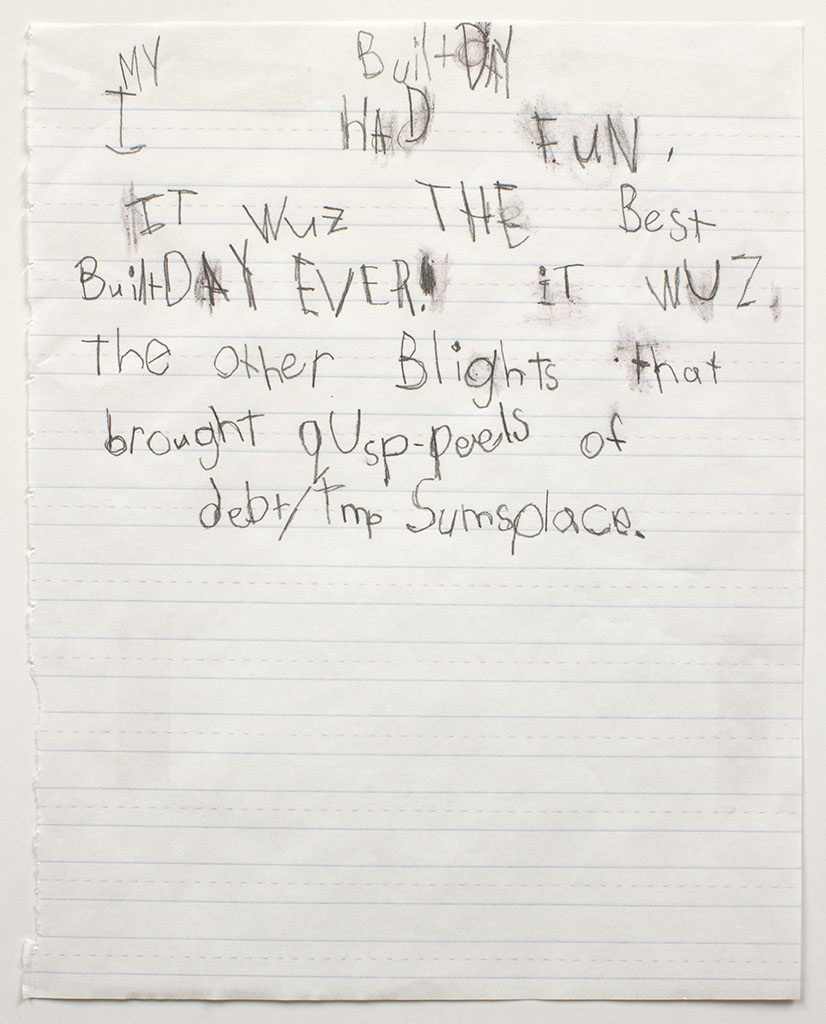 MY BuiltDAY
I HAD FUN.
IT Wuz THE Best
BuiltDAY EVER! iT WUZ.
the other Blights that
brought qUsp-peels of
debt/Tmp Sumsplace.